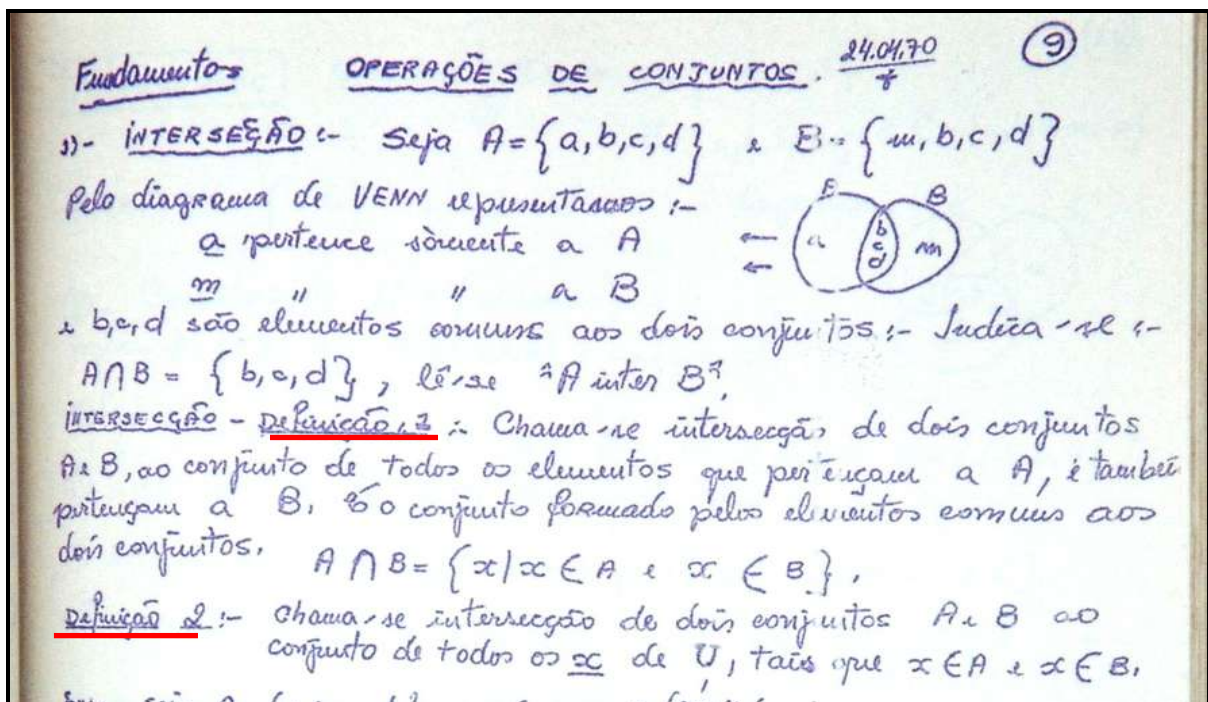 Fundamentos OPERAÇÕES DE CONJUNTOS. 24.04.70 9
1)- INTERSEÇÃO :- Seja A = {a, b, c, d} e B = {m, b, c, d}
Pelo diagrama de VENN representamos :-
a pertence sòmente a A
m " " a B
e b, c, d são elementos comuns aos dois conjuntos :- Indica-se :-
A ∩ B = {b, c, d}, lê-se "A inter B",
B
a b c d m
INTERSECÇÃO - Definição 1 :- Chama-se intersecção de dois conjuntos
A e B, ao conjunto de todos os elementos que pertençam a A, e também
pertençam a B. É o conjunto formado pelos elementos comuns aos
dois conjuntos.
A ∩ B = {x/x ∈ A e x ∈ B}.
Definição 2 :- Chama-se intersecção de dois conjuntos A e B ao
conjunto de todos os x de U, tais que x ∈ A e x ∈ B.